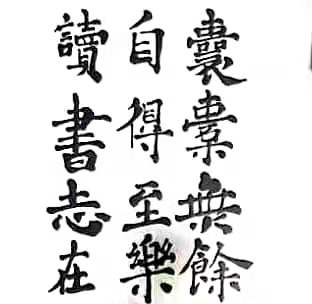 囊橐無餘
自得至樂
讀書志在